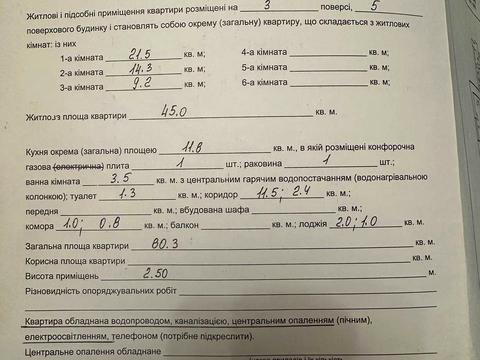 Житлові і підсобні приміщення квартири розміщені на 3 поверсі, 5
поверхового будинку і становлять собою окрему (загальну) квартиру, що складається з житлових
кімнат: із них
1-а кімната 21.5 кв. м; 4-а кімната кв. м;
2-а кімната 14.3 кв. м; 5-а кімната кв. м;
3-а кімната 9.2 кв. м; 6-а кімната кв. м;
Житлова площа квартири 45.0 кв. м.
Кухня окрема (загальна) площею 11.8 кв. м., в якій розміщені конфорочна
газова (електрична) плита 1 шт.; раковина 1 шт.;
ванна кімната 3.5 кв. м з центральним гарячим водопостачанням (водонагрівальною
колонкою); туалет 1.3 кв. м.; коридор 11.5; 2.4 кв. м.;
передня кв. м.; вбудована шафа кв. м.;
комора 1.0; 0.8 кв. м.; балкон кв. м.; лоджія 2.0; 1.0 кв. м.
Загальна площа квартири 80.3 кв. м.
Корисна площа квартири кв. м.
Висота приміщень 2.50 м.
Різновидність опоряджувальних робіт
Квартира обладнана водопроводом, каналізацією, центральним опаленням (пічним),
електроосвітленням, телефоном (потрібне підкреслити).
Центральне опалення обладнане